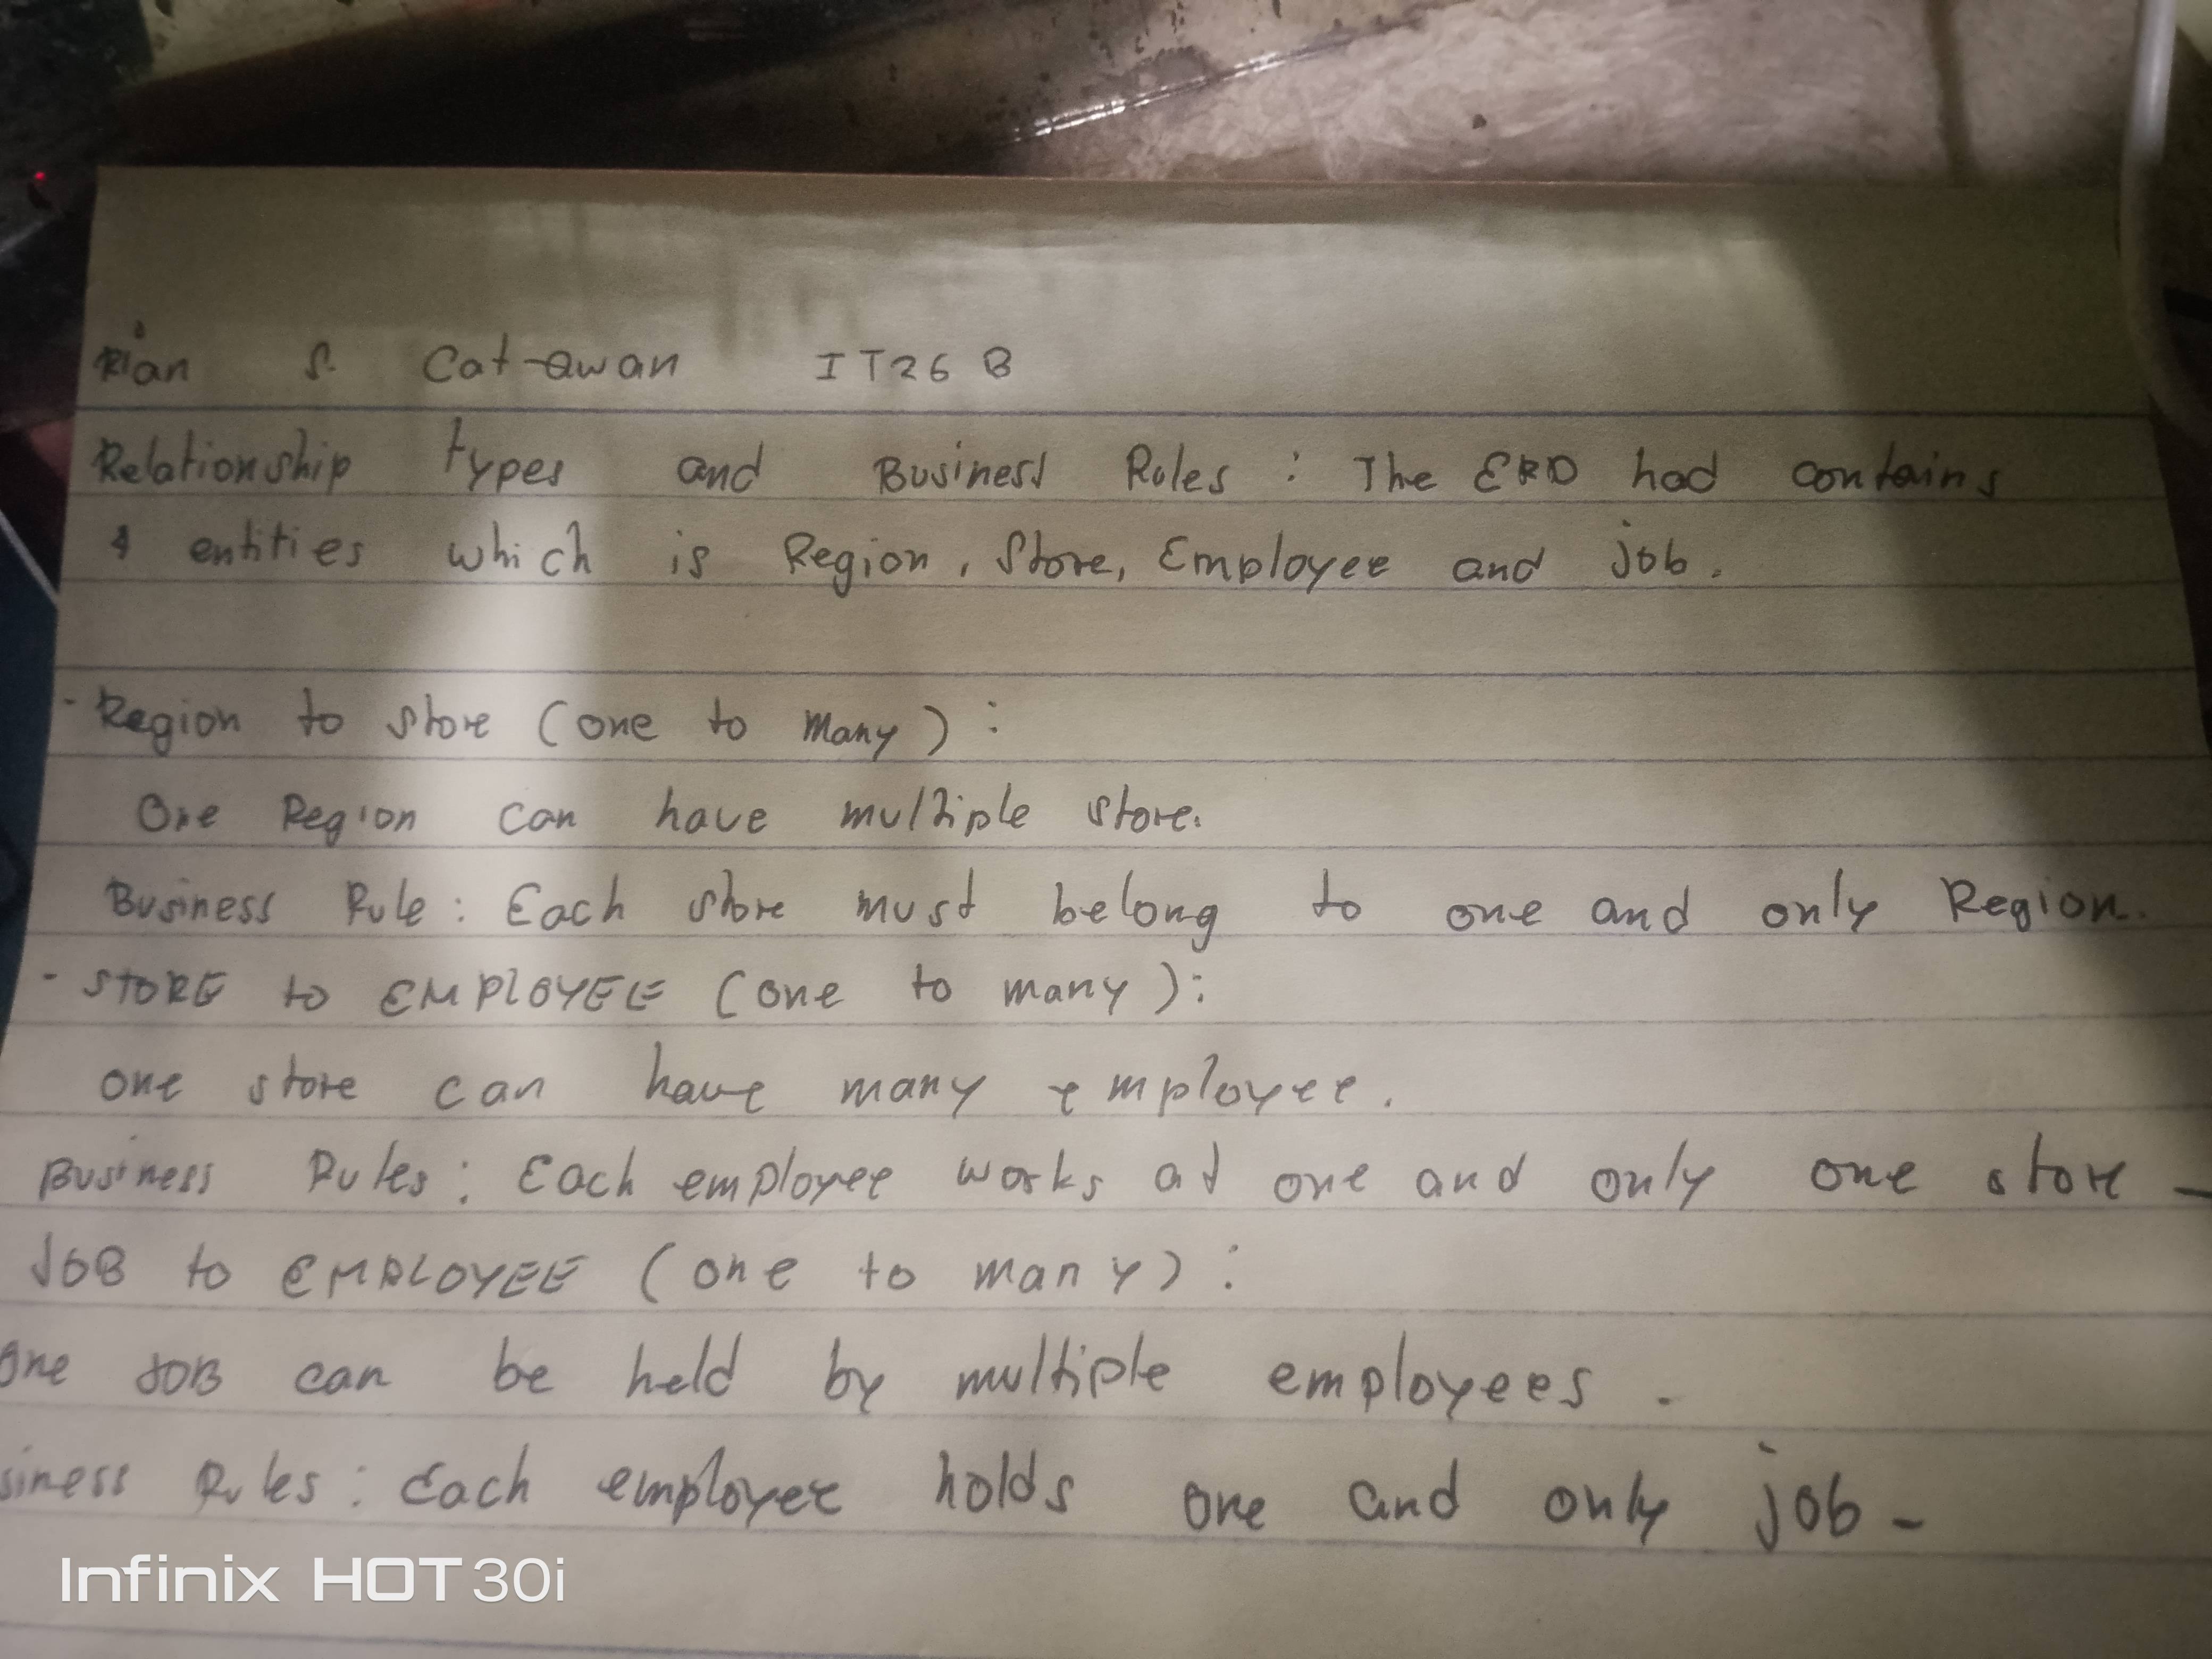 Rian S. Cat-awan IT26 B
Relationship types and Business Rules : The ERD had contains
4 entities which is Region, Store, Employee and job.
- Region to store (one to Many) :
One Region can have multiple store.
Business Rule : Each store must belong to one and only Region.
- STORE to EMPLOYEE (one to many) :
one store can have many employee.
Business Rules : Each employee works at one and only one store -
JOB to EMPLOYEE (one to many) :
One JOB can be held by multiple employees.
siness Rules : Each employee holds one and only job -
Infinix HOT 30i